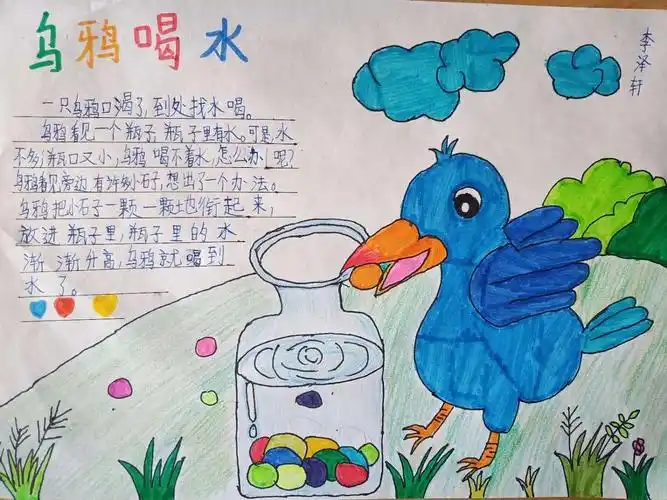 乌鸦喝水
李泽轩
一只乌鸦口渴了,到处找水喝。
乌鸦看见一个瓶子,瓶子里有水。可是,水
不多,瓶口又小,乌鸦喝不着水,怎么办呢?
乌鸦看见旁边有许多小石子,想出了一个办法。
乌鸦把小石子一颗一颗地衔起来,
放进瓶子里,瓶子里的水
渐渐升高,乌鸦就喝到
水了。